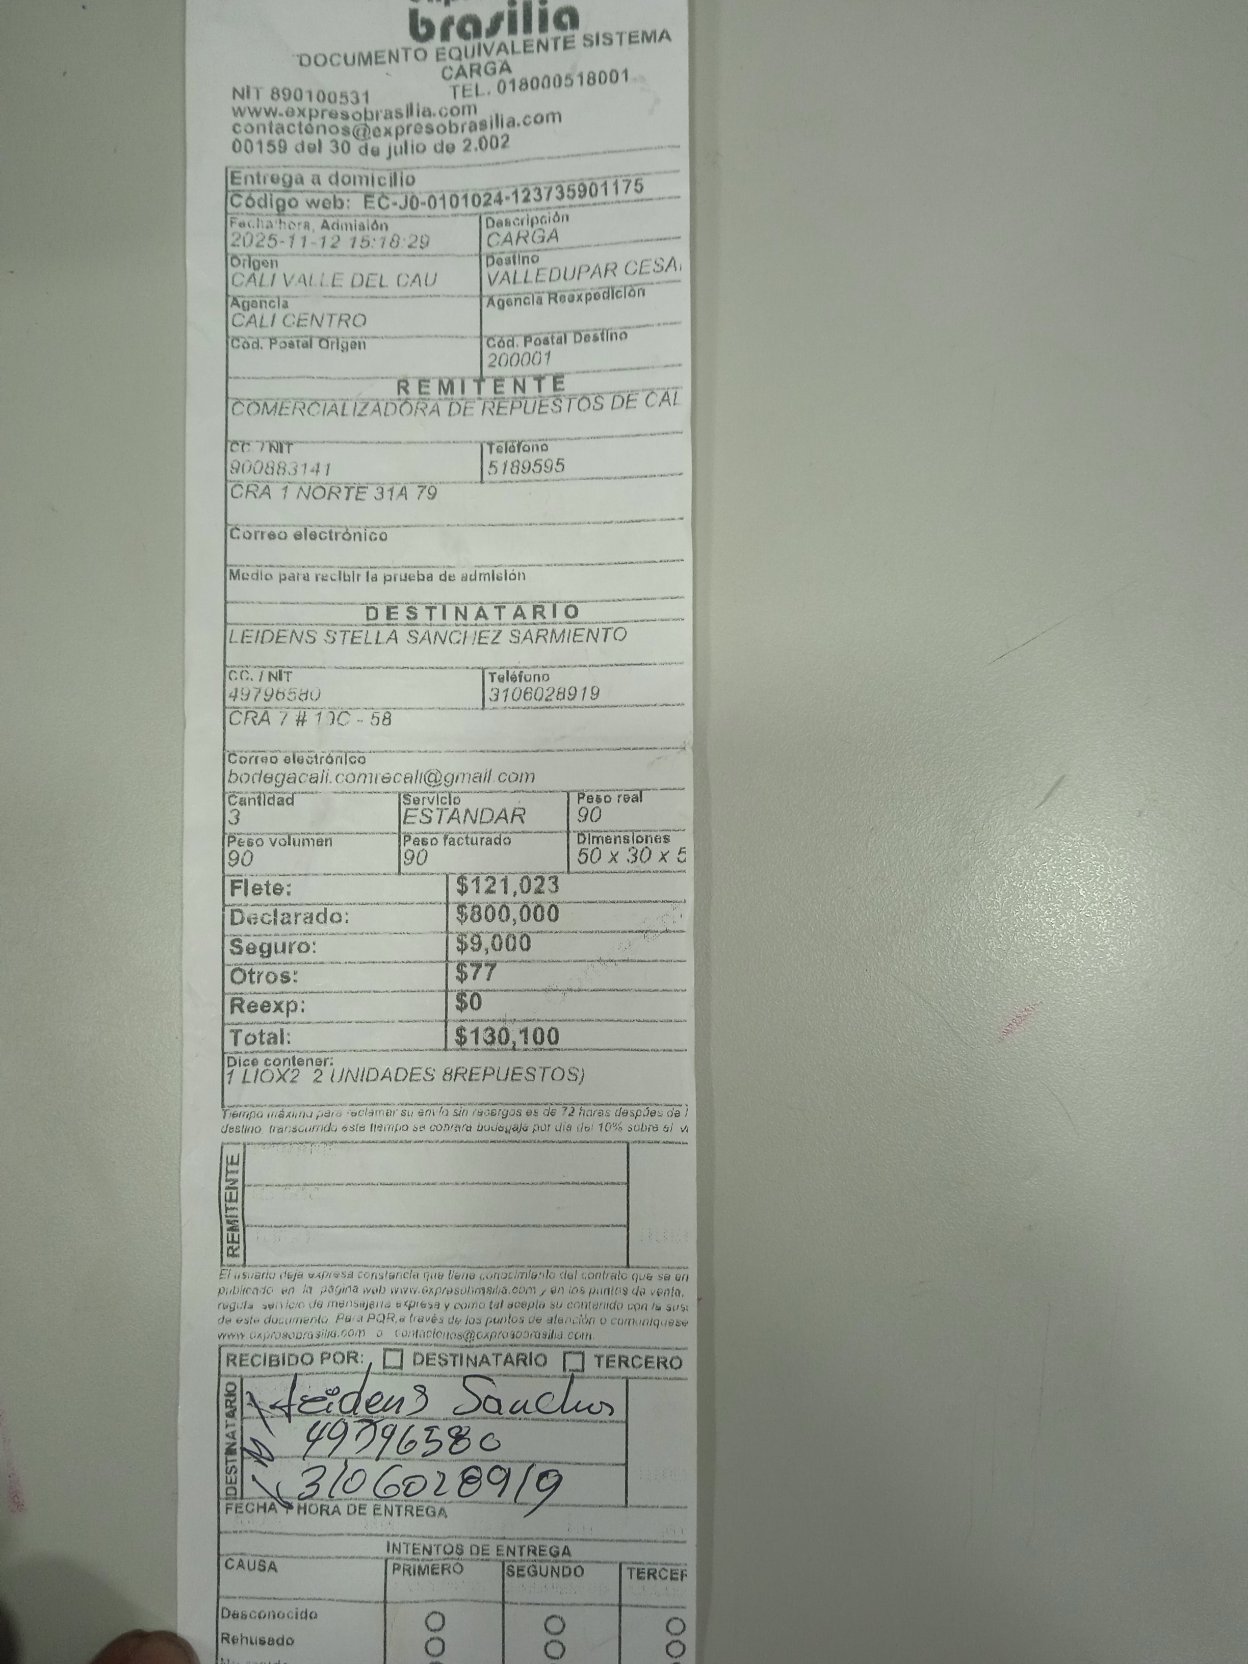 brasilia
DOCUMENTO EQUIVALENTE SISTEMA
CARGA
NIT 890100531 TEL. 018000518001
www.expresobrasilia.com
contactenos@expresobrasilia.com
00159 del 30 de julio de 2.002
Entrega a domicilio
Código web: EC-J0-0101024-123735901175
Fecha hora, Admisión Descripción
2025-11-12 15:18:29 CARGA
Origen Destino
CALI VALLE DEL CAU VALLEDUPAR CESA
Agencia Agencia Reexpedición
CALI CENTRO
Cód. Postal Origen Cód. Postal Destino
200001
REMITENTE
COMERCIALIZADORA DE REPUESTOS DE CAL
CC. / NIT Teléfono
900883141 5189595
CRA 1 NORTE 31A 79
Correo electrónico
Medio para recibir la prueba de admisión
DESTINATARIO
LEIDENS STELLA SANCHEZ SARMIENTO
CC. / NIT Teléfono
49796580 3106028919
CRA 7 # C - 58
Correo electrónico
bodegacali.comrecali@gmail.com
Cantidad Servicio Peso real
3 ESTANDAR 90
Peso volumen Peso facturado Dimensiones
90 90 50 x 30 x 5
Flete: $121,023
Declarado: $800,000
Seguro: $9,000
Otros: $77
Reexp: $0
Total: $130,100
Dice contener:
1 LIOX2 2 UNIDADES 8REPUESTOS)
Tiempo máximo para reclamar su envío sin recargos es de 72 horas despúes de
destino, transcurrido este tiempo se cobrará bodegaje por día del 10% sobre el v
REMITENTE
El usuario deja expresa constancia que tiene conocimiento del contrato que se en
publicado en la página web www.expresobrasilia.com y en los puntos de venta,
regula servicio de mensajería expresa y como tal acepta su contenido con la sus
de este documento. Para PQR,a través de los puntos de atención o comuníquese
www.expresobrasilia.com o contactenos@expresobrasilia.com.
RECIBIDO POR: DESTINATARIO TERCERO
DESTINATARIO
Leidens Sanchez
49796580
3106028919
FECHA Y HORA DE ENTREGA
INTENTOS DE ENTREGA
CAUSA PRIMERO SEGUNDO TERCER
Desconocido
Rehusado